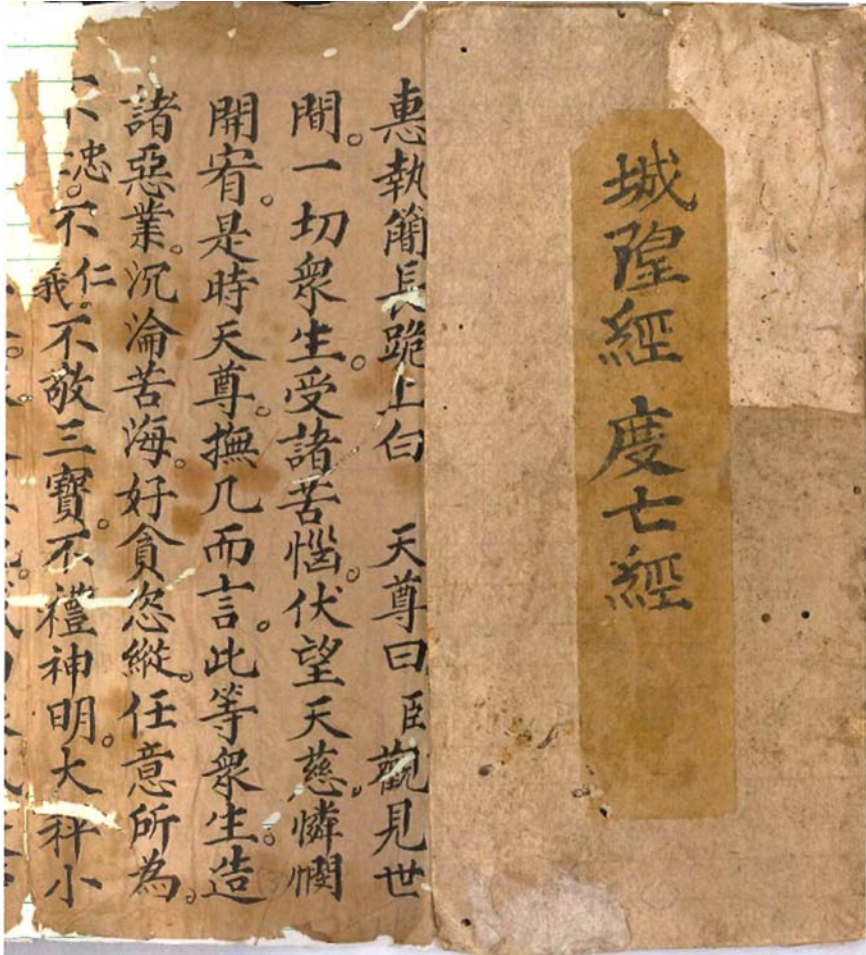 城隍經 度亡經
惠執簡長跪上白 天尊曰臣觀見世
間。一切衆生。受諸苦惱。伏望天慈。憐憫
開宥。是時天尊。撫几而言。此等衆生。造
諸惡業。沉淪苦海。好貪恣縱。任意所為。
不忠。不仁義。不敬三寶。不禮神明。大秤小